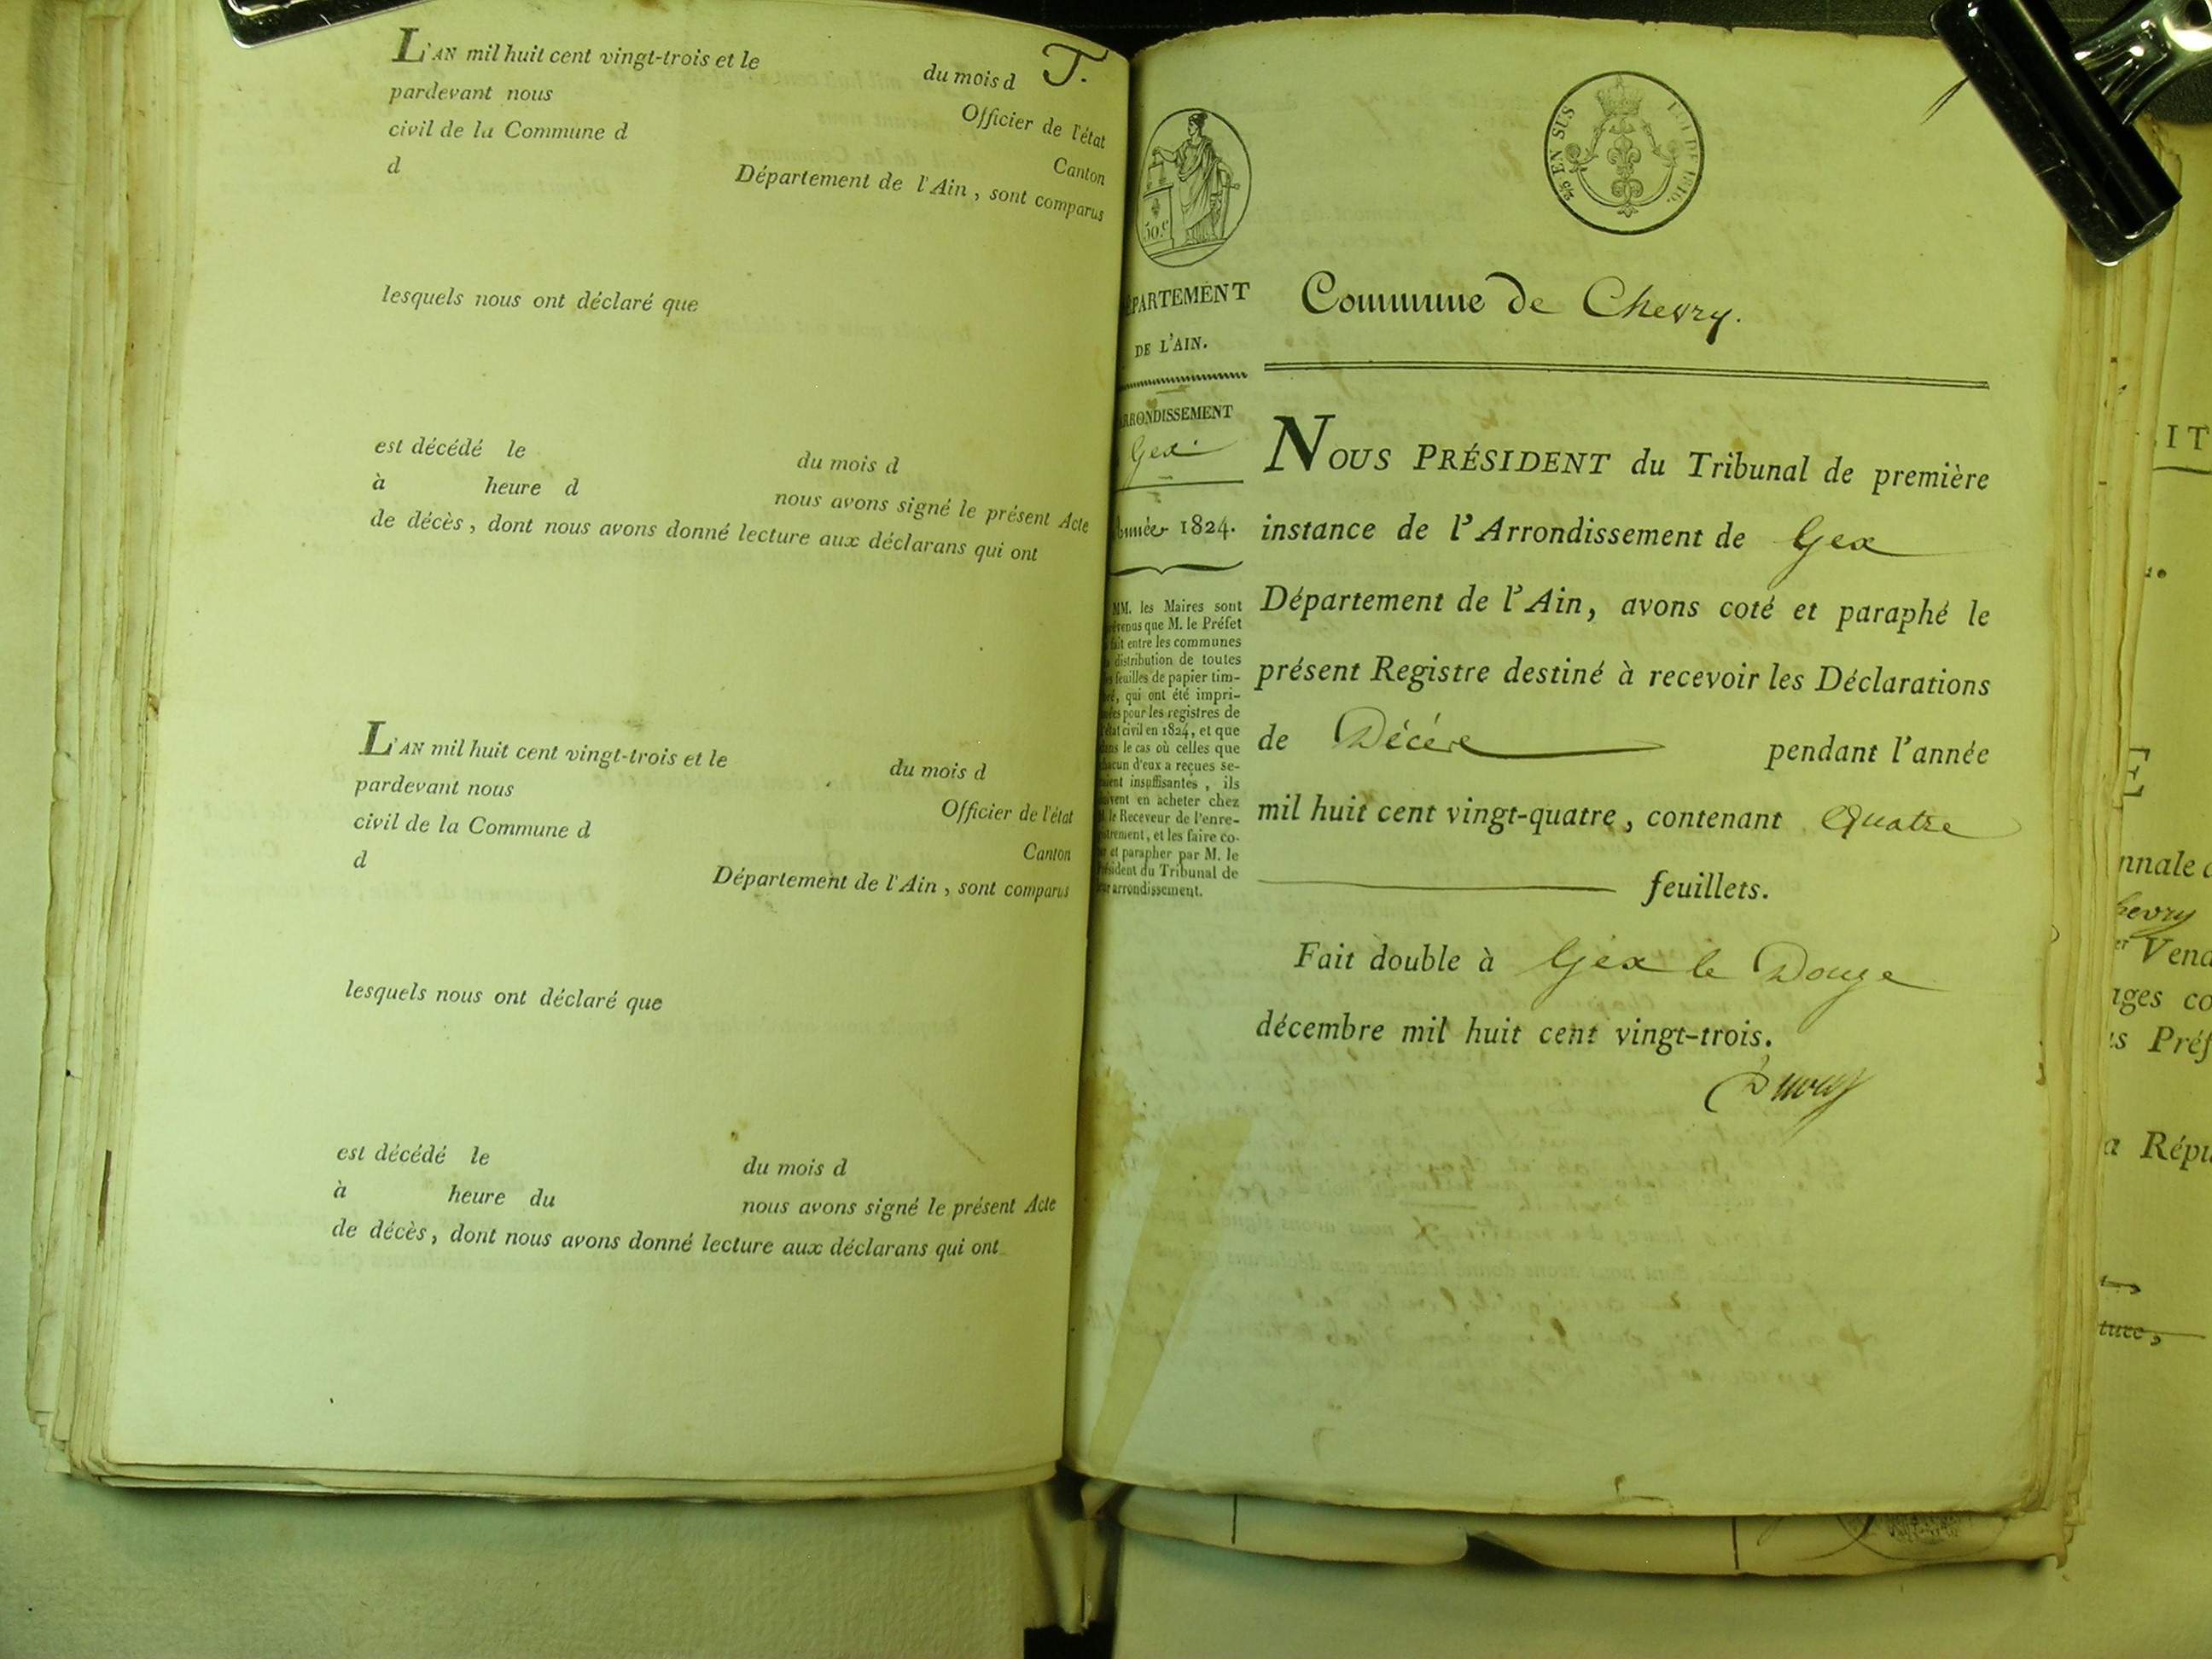 L'AN mil huit cent vingt-trois et le du mois d T.
pardevant nous Officier de l'état
civil de la Commune d Canton
d Département de l'Ain, sont comparus
lesquels nous ont déclaré que
est décédé le du mois d
à heure d nous avons signé le présent Acte
de décès, dont nous avons donné lecture aux déclarans qui ont
L'AN mil huit cent vingt-trois et le du mois d
pardevant nous Officier de l'état
civil de la Commune d Canton
d Département de l'Ain, sont comparus
lesquels nous ont déclaré que
est décédé le du mois d
à heure du nous avons signé le présent Acte
de décès, dont nous avons donné lecture aux déclarans qui ont
50.c
25c EN SUS LOI DE 1816.
PARTEMENT
DE L'AIN.
RRONDISSEMENT
Gex
année 1824.
MM. les Maires sont
venus que M. le Préfet
fait entre les communes
distribution de toutes
feuilles de papier tim-
é, qui ont été impri-
ées pour les registres de
état civil en 1824, et que
ns le cas où celles que
acun d'eux a reçues se-
ient insuffisantes, ils
ivent en acheter chez
le Receveur de l'enre-
strement, et les faire co-
et parapher par M. le
sident du Tribunal de
arrondissement.
Commune de Chevry.
NOUS PRÉSIDENT du Tribunal de première
instance de l'Arrondissement de Gex
Département de l'Ain, avons coté et paraphé le
présent Registre destiné à recevoir les Déclarations
de Décére pendant l'année
mil huit cent vingt-quatre, contenant Quatre
feuillets.
Fait double à Gex le Douze
décembre mil huit cent vingt-trois.
IT
E
nnale
hevry
Vend
ages co
s Préf
a Répu
ture,